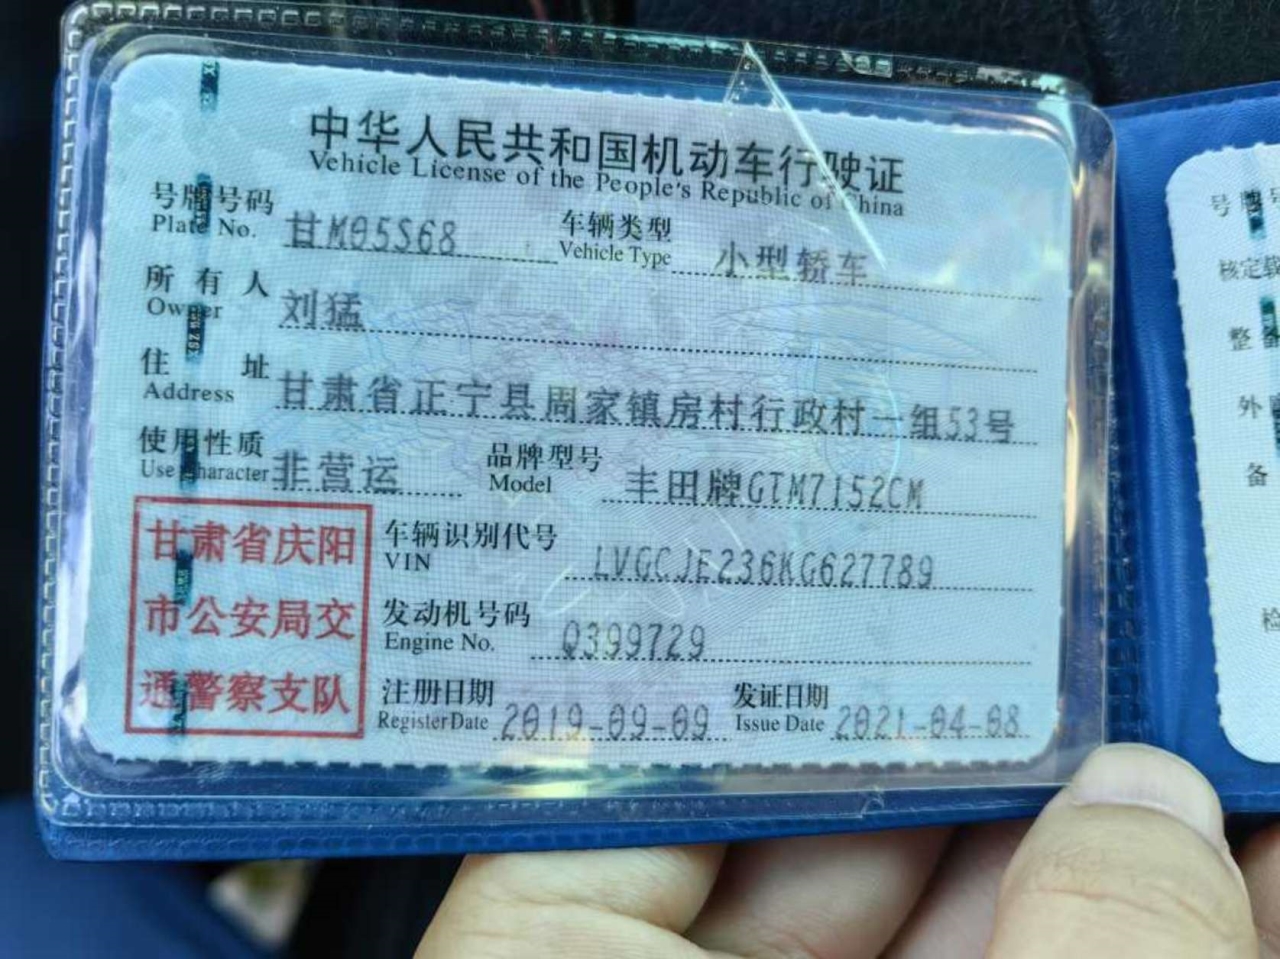 中华人民共和国机动车行驶证
Vehicle License of the People's Republic of China
号牌号码 甘M05S68 车辆类型 小型轿车
Plate No. Vehicle Type
所有人 刘猛
Owner
住址 甘肃省正宁县周家镇房村行政村一组53号
Address
使用性质 非营运 品牌型号 丰田牌GTM7152CM
Use Character Model
甘肃省庆阳
市公安局交
通警察支队
车辆识别代号 LVGCJE236KG627789
VIN
发动机号码 Q399729
Engine No.
注册日期 2019-09-09 发证日期 2021-04-08
Register Date Issue Date
号牌号
核定载
整备
外
备
检